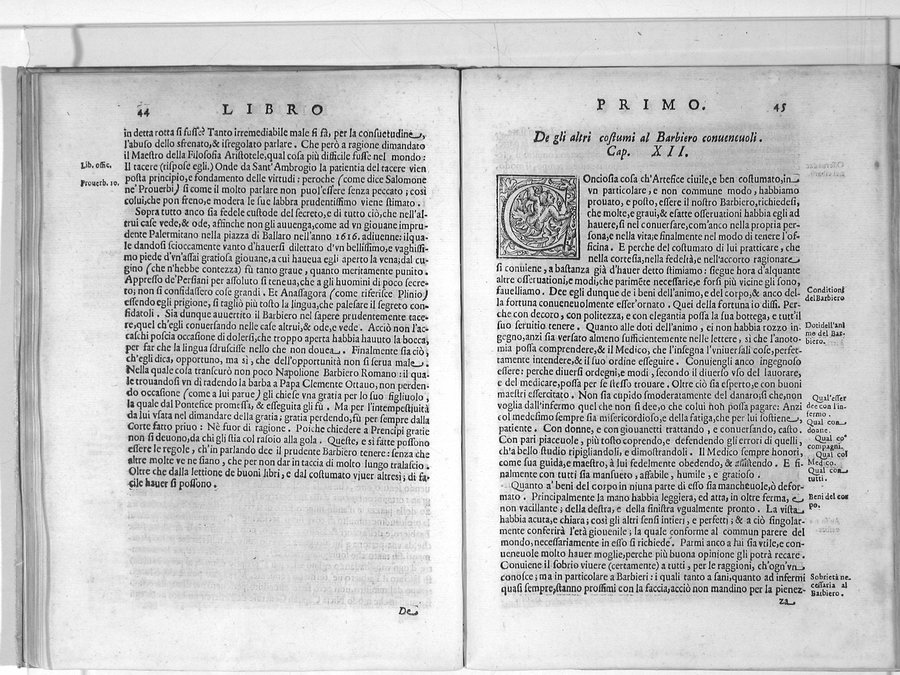 44
LIBRO
in detta rotta si fusse? Tanto irremediabile male si fà, per la consuetudine,
l'abuso dello sfrenato, & isregolato parlare. Che però a ragione dimandato
il Maestro della Filosofia Aristotele, qual cosa più difficile fusse nel mondo:
Lib. offic.
Il tacere (rispose egli.) Onde da Sant'Ambrogio la patientia del tacere vien
posta principio, e fondamento delle virtudi: peroche (come dice Salomone
Prouerb. 10.
ne' Prouerbi) si come il molto parlare non può l'esser senza peccato; così
colui, che pon freno, e modera le sue labbra prudentissimo viene stimato.
Sopra tutto anco sia fedele custode del secreto, e di tutto ciò, che nell'al-
trui case vede, & ode, affinche non gli auuenga, come ad vn giouane impru-
dente Palermitano nella piazza di Ballaro nell'anno 1616. adiuenne: il qua-
le dandosi scioccamente vanto d'hauersi dilettato d'vn bellissimo, e vaghissi-
mo piede d'vn'assai gratiosa giouane, a cui haueua egli aperto la vena; dal cu-
gino (che n'hebbe contezza) fù tanto graue, quanto meritamente punito.
Appresso de'Persiani per assoluto si teneua, che a gli huomini di poco secre-
to; non si confidassero cose grandi. Et Anassagora (come riferisce Plinio)
essendo egli prigione, si tagliò più tosto la lingua, che palesare il segreto con-
fidatoli. Sia dunque auuertito il Barbiero nel sapere prudentemente tace-
re, quel ch'egli conuersando nelle case altrui, & ode, e vede. Acciò non l'ac-
caschi poscia occasione di dolersi, che troppo aperta habbia hauuto la bocca,
per far che la lingua sdruscisse nello che non douea. Finalmente sia ciò,
ch'egli dica, opportuno, ma sì, che dell'opportunità non si serua male.
Nella quale cosa transcurò non poco Napolione Barbiero Romano: il qua-
le trouandosi vn dì radendo la barba a Papa Clemente Ottauo, non perden-
do occasione (come a lui parue) gli chiese vna gratia per lo suo figliuolo,
la quale dal Pontefice promessa, & esseguita gli fù. Ma per l'intempestiuità
da lui vsata nel dimandare della gratia; gratia perdendo, fù per sempre dalla
Corte fatto priuo: Nè fuor di ragione. Poi che chiedere a Prencipi gratie
non si deuono, da chi gli stia col rasoio alla gola. Queste, e sì fatte possono
essere le regole, ch'in parlando dee il prudente Barbiero tenere: senza che
altre molte ve ne siano, che per non dar in taccia di molto lungo tralascio.
Oltre che dalla lettione de buoni libri, e dal costumato viuer altresì; di fa-
cile hauer si possono.
De
PRIMO.
45
De gli altri costumi al Barbiero conueneuoli.
Cap. XII.
COnciosia cosa ch'Artefice ciuile, e ben costumato, in
vn particolare, e non commune modo, habbiamo
prouato, e posto, essere il nostro Barbiero, richiedesi,
che molte, e graui, & esatte osseruationi habbia egli ad
hauere, sì nel conuersare, com'anco nella propria per-
sona, e nella vita; e finalmente nel modo di tenere l'of-
ficina. E perche del costumato di lui pratticare, che
nella cortesia, nella fedeltà, e nell'accorto ragionare
si conuiene, a bastanza già d'hauer detto stimiamo: siegue hora d'alquante
altre osseruationi, e modi, che parimẽte necessarie, e forsi più vicine gli sono,
Conditioni
del Barbiero
fauelliamo. Dee egli dunque de i beni dell'animo, e del corpo, & anco del-
la fortuna conueneuolmente esser'ornato. Quei della fortuna io dissi. Per-
che con decoro, con politezza, e con elegantia possa la sua bottega, e tutt'il
suo seruitio tenere. Quanto alle doti dell'animo, ei non habbia rozzo in-
Doti dell'ani
mo del Bar-
biero.
gegno, anzi sia versato almeno sufficientemente nelle lettere, sì che l'anoto-
mia possa comprendere, & il Medico, che l'insegna l'vniuersali cose, perfet-
tamente intendere, & il suo ordine esseguire. Conuiengli anco ingegnoso
essere: perche diuersi ordegni, e modi, secondo il diuerso vso del lauorare,
e del medicare, possa per se stesso trouare. Oltre ciò sia esperto, e con buoni
maestri essercitato. Non sia cupido smoderatamente del danaro; si che, non
Qual'esser
dee con l'in-
fermo.
voglia dall'infermo quel che non si dee, o che colui non possa pagare: Anzi
del medesimo sempre sia misericordioso, e della fatiga, che per lui sostiene,
Qual con
donne.
patiente. Con donne, e con giouanetti trattando, e conuersando, casto.
Con pari piaceuole, più tosto coprendo, e defendendo gli errori di quelli,
Qual co'
compagni.
ch'a bello studio ripigliandoli, e dimostrandoli. Il Medico sempre honori,
Qual col
Medico.
come sua guida, e maestro, à lui fedelmente obedendo, & assistendo. E fi-
nalmente con tutti sia mansueto, affabile, humile, e gratioso.
Qual con
tutti.
Quanto a' beni del corpo in niuna parte di esso sia mancheuole, ò defor-
Beni del cor
po.
mato. Principalmente la mano habbia leggiera, ed atta, in oltre ferma, e
non vacillante; della destra, e della sinistra vgualmente pronto. La vista
habbia acuta, e chiara; così gli altri sensi intieri, e perfetti; & a ciò singolar-
mente conferirà l'età giouenile; la quale conforme al commun parere del
mondo, necessariamente in esso si richiede. Parmi anco a lui sia vtile, e con-
ueneuole molto hauer moglie, perche più buona opinione gli potrà recare.
Conuiene il sobrio viuere (certamente) a tutti, per le raggioni, ch'ogn'vn
Sobrietà ne-
cessaria al
Barbiero.
conosce; ma in particolare a Barbieri: i quali tanto a sani, quanto ad infermi
quasi sempre, stanno prossimi con la faccia, acciò non mandino per la pienez-
za